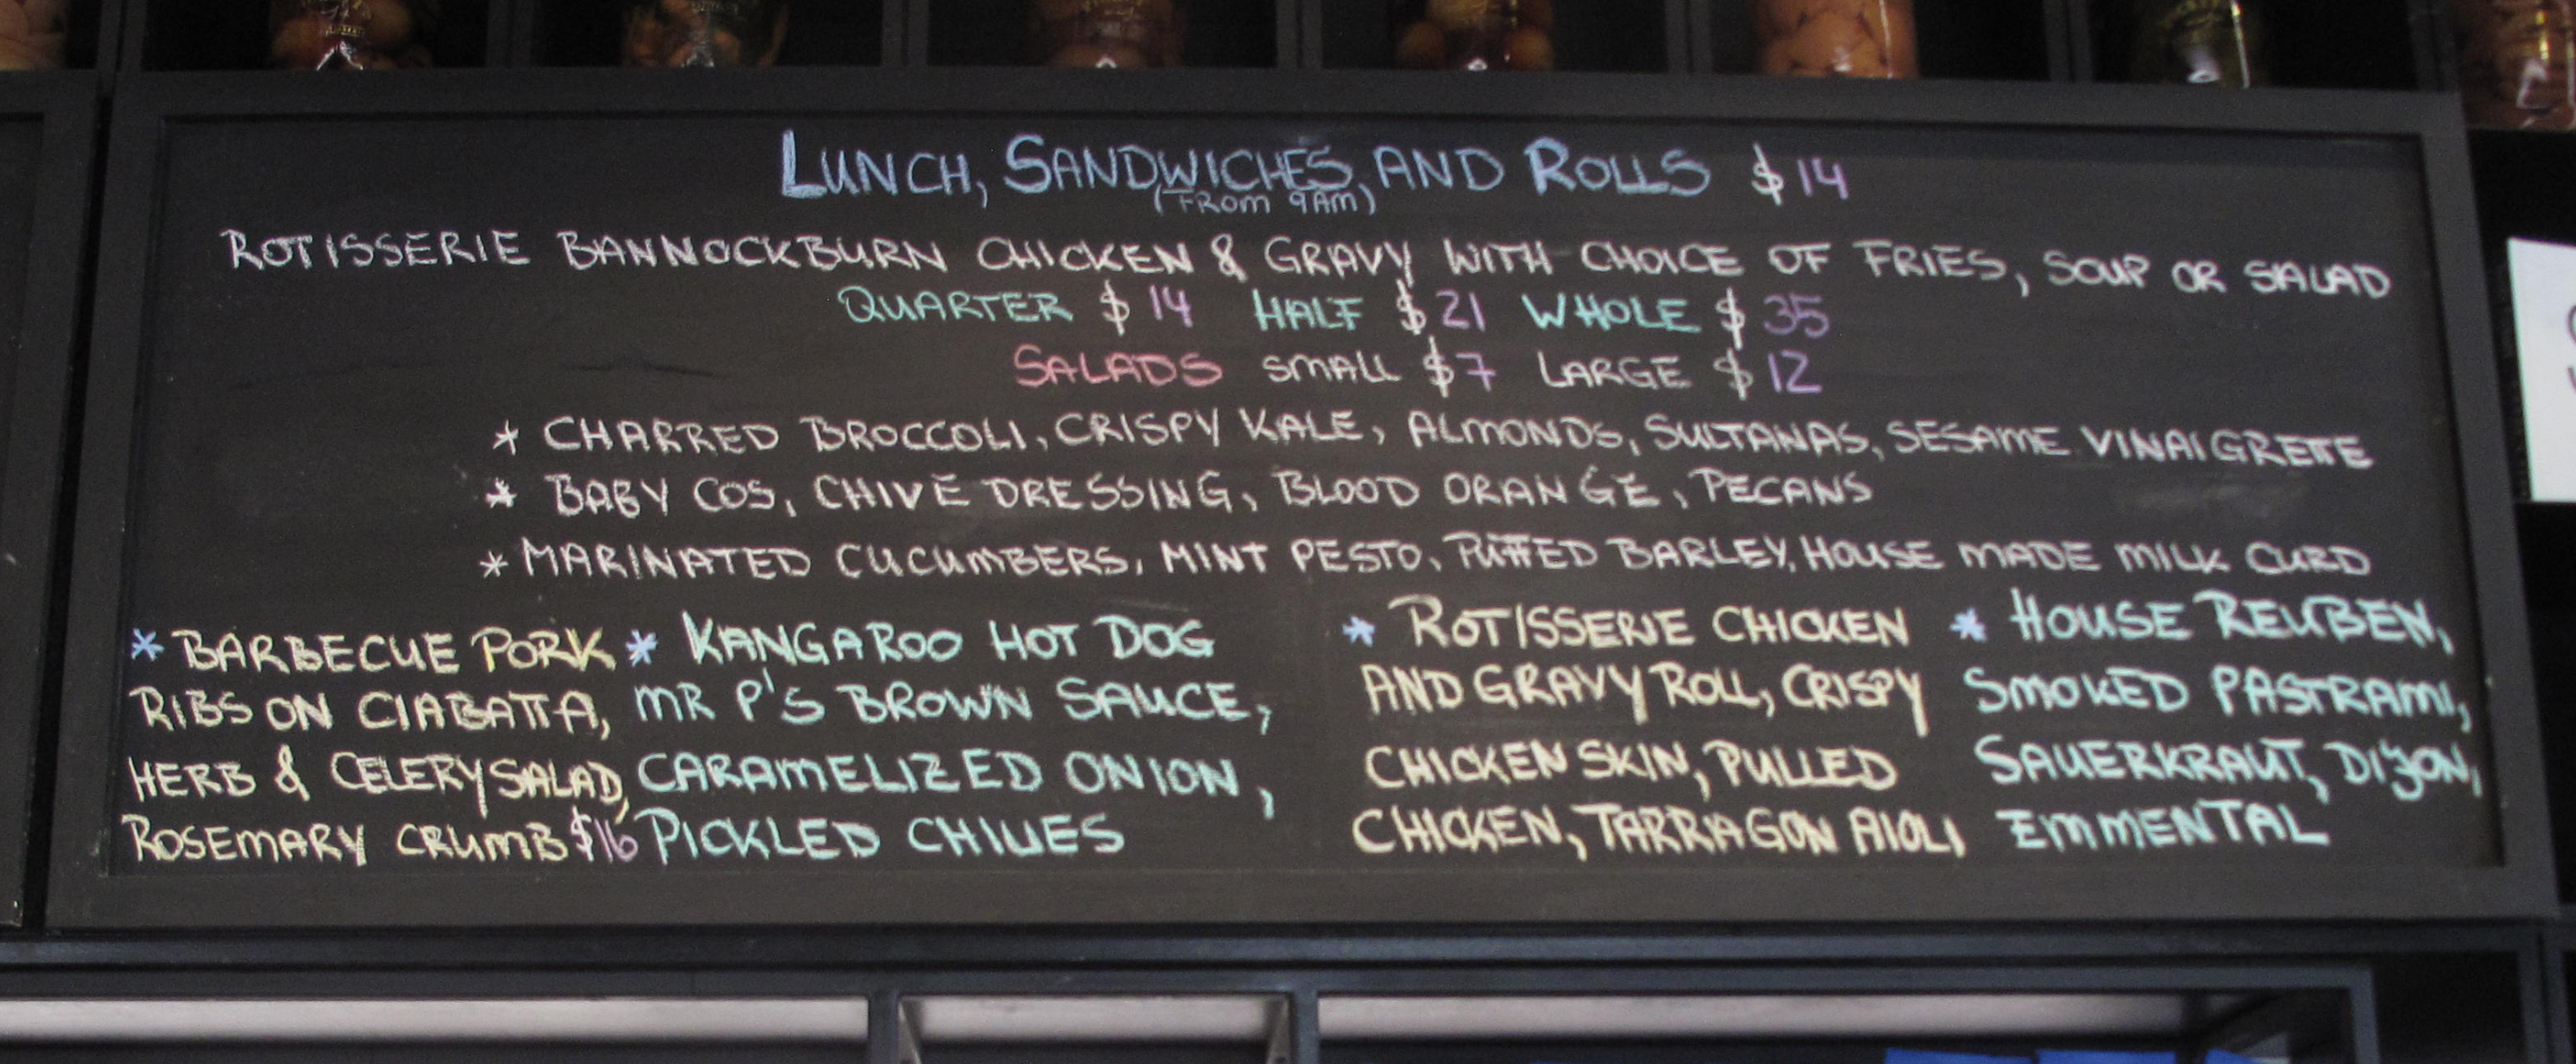 LUNCH, SANDWICHES, AND ROLLS $14
(FROM 9AM)
ROTISSERIE BANNOCKBURN CHICKEN & GRAVY WITH CHOICE OF FRIES, SOUP OR SALAD
QUARTER $14 HALF $21 WHOLE $35
SALADS SMALL $7 LARGE $12
* CHARRED BROCCOLI, CRISPY KALE, ALMONDS, SULTANAS, SESAME VINAIGRETTE
* BABY COS, CHIVE DRESSING, BLOOD ORANGE, PECANS
* MARINATED CUCUMBERS, MINT PESTO, PUFFED BARLEY, HOUSE MADE MILK CURD
* BARBECUE PORK
RIBS ON CIABATTA,
HERB & CELERY SALAD,
ROSEMARY CRUMB $16
* KANGAROO HOT DOG
MR P'S BROWN SAUCE,
CARAMELIZED ONION,
PICKLED CHILIES
* ROTISSERIE CHICKEN
AND GRAVY ROLL, CRISPY
CHICKEN SKIN, PULLED
CHICKEN, TARRAGON AIOLI
* HOUSE REUBEN,
SMOKED PASTRAMI,
SAUERKRAUT, DIJON,
EMMENTAL